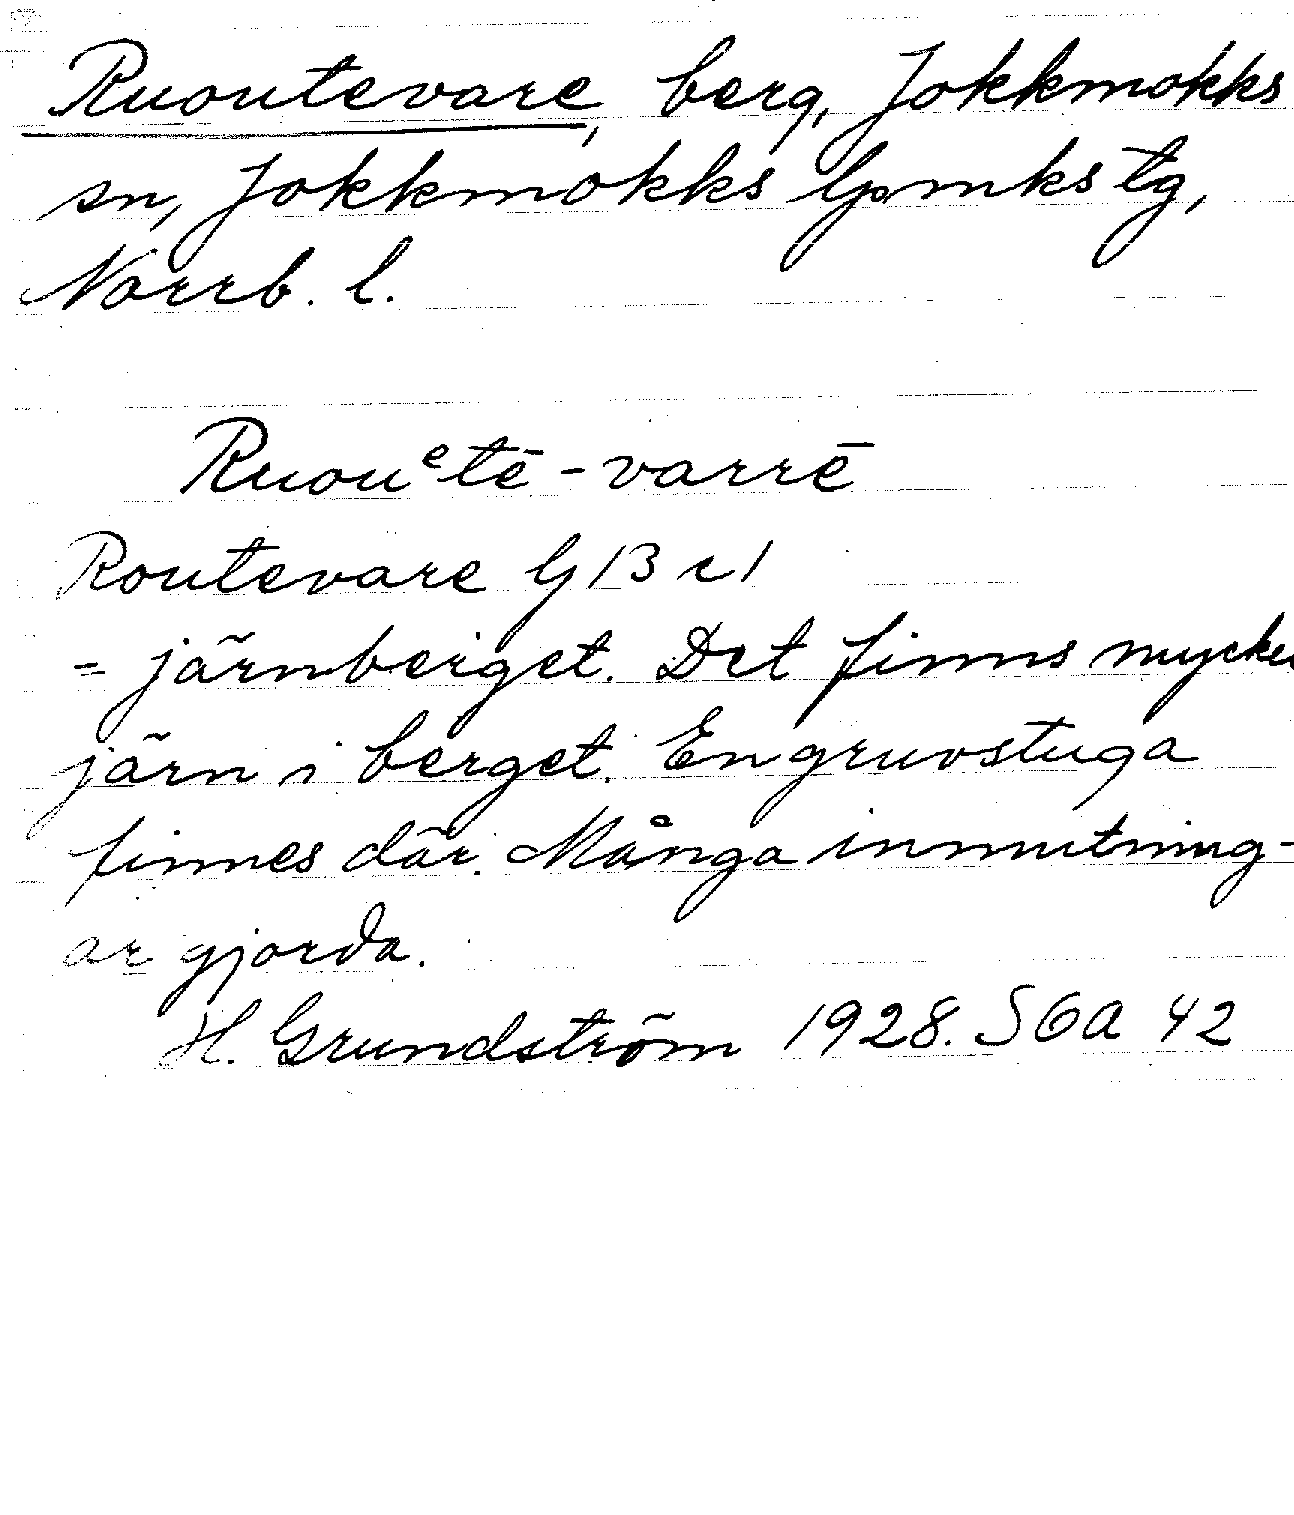 Ruoutevare, berg, Jokkmokks
sn, Jokkmokks lpmks tg,
Norrb. l.
Ruouᵉtē-varrē
Routevare G 13 c 1
= järnberget. Det finns mycket
järn i berget. En gruvstuga
finnes där. Många inmutning-
ar gjorda.
H. Grundström 1928. SOA 42